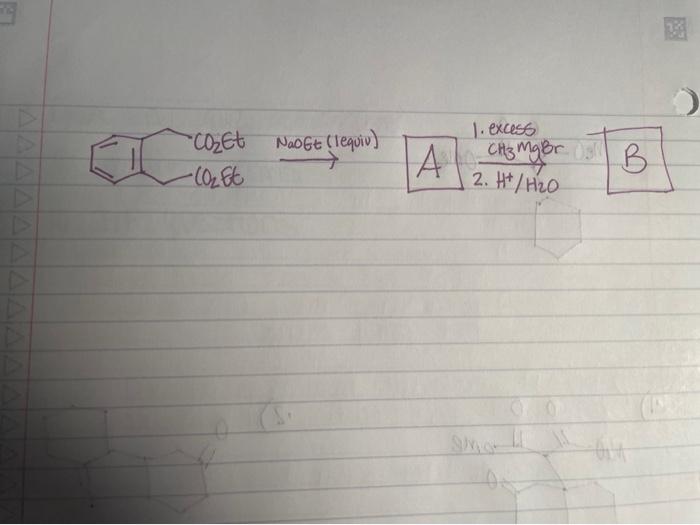 CO2Et
CO2Et
NaOEt (1equiv)
A
1. excess
CH3MgBr
2. H+/H2O
B